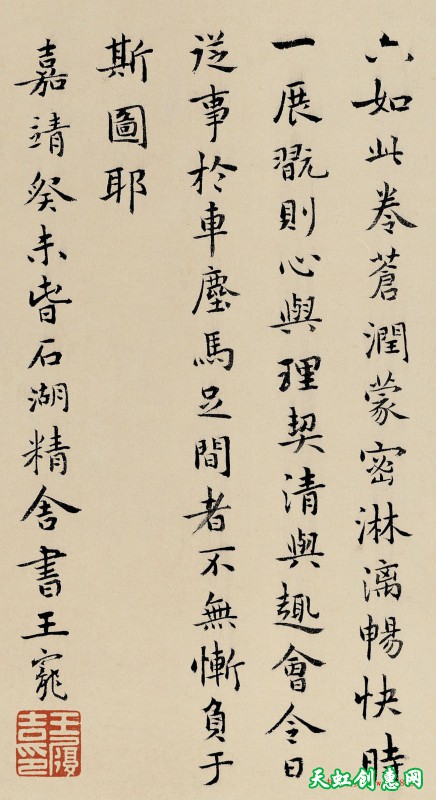 六如此卷蒼潤蒙密淋漓暢快時
一展翫則心與理契清與趣會令日
從事於車塵馬足間者不無慚負于
斯圖耶
嘉靖癸未眥石湖精舍書王寵
王履吉印
天虹创惠网